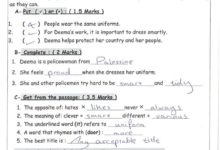 as they can.
A- Put (✓) or (×): ( 1.5 Marks )
1. ( ✓ ) People wear the same uniforms.
2. ( ) For Deema's work, it is important to dress smartly.
3. ( ) Deema helps protect her country and her people.
B- Complete : ( 2 Marks )
1. Deema is a policewoman from Palestine
2. She feels proud when she dresses her uniform.
3. She and other policemen try hard to be smart and tidy
C- Get from the passage: ( 3.5 Marks )
1. The opposite of: hates × likes never × always
2. The meaning of: clever = smart different = various
3. The underlined word (it) refers to uniform
4. A word that rhymes with (door)
5. The best title is: Any acceptable title